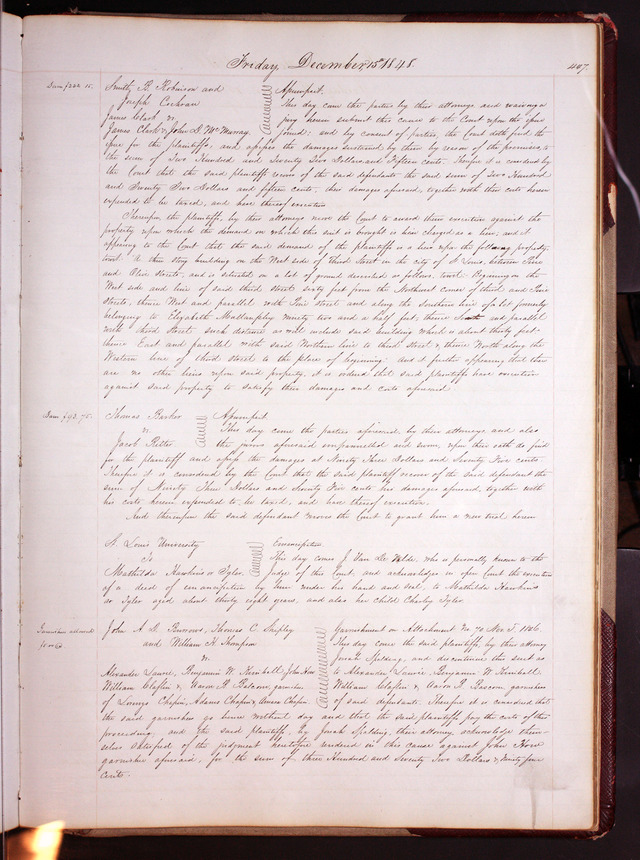 Friday, December 15th 1848.
407.
Dam $272.15.
Smith, B. Robinson and
Joseph Cochran
James Clark &
James Clark & John D. McMurray.
Assumpsit.
This day come the parties by their attorneys and waiving a
jury herein submit this cause to the Court upon the issue
joined: and by consent of parties, the Court doth find the
issue for the plaintiffs; and assesses the damages sustained by them by reason of the premises, to
the sum of Two Hundred and Seventy Two Dollars and Fifteen cents. Therefore it is considered by
the Court that the said plaintiffs recover of the said defendants the said sum of Two Hundred
and Seventy Two Dollars and fifteen cents, their damages aforesaid, together with their costs herein
expended to be taxed, and have thereof execution.
Thereupon the plaintiffs, by their attorneys move the Court to award them execution against the
property upon which the demand on which this suit is brought is herein charged as a lien; and it
appearing to the Court that the said demand of the plaintiffs is a lien upon the following property,
towit: A three story building on the West side of Third Street in the city of St Louis, between Pine
and Olive Streets, and is situated on a lot of ground described as follows, towit: Beginning on the
West side and line of said third street sixty feet from the Northwest corner of third and Pine
Streets, thence West and parallel with Pine street and along the Southern line of a lot formerly
belonging to Elizabeth Mullanphy ninety two and a half feet, thence South and parallel
with third Street such distance as will include said building which is about thirty feet,
thence East and parallel with said Northern line to third street & thence North along the
Western line of third street to the place of beginning: And it further appearing that there
are no other liens upon said property, it is ordered that said plaintiffs have execution
against said property to satisfy their damages and costs aforesaid.
Dam $93.75.
Thomas Barker
vs
Jacob Ritter
Assumpsit.
This day come the parties aforesaid by their attorneys and also
the jurors aforesaid empannelled and sworn, upon their oath do find
for the plaintiff and assess the damages at Ninety Three Dollars and Seventy Five cents.
Therefore it is considered by the Court that the said plaintiff recover of the said defendant the
sum of Ninety Three Dollars and Seventy Five cents his damages aforesaid, together with
his costs herein expended to be taxed, and have thereof execution.
And thereupon the said defendant moves the Court to grant him a new trial herein
St. Louis University
To
Mathilda Hawkins or Tyler.
Emancipation.
This day comes J. Van De Velde, who is personally known to the
Judge of this Court, and acknowledges in open Court the execution
of a deed of emancipation by him under his hand and seal to Mathilda Hawkins
or Tyler aged about thirty eight years, and also her child Charley Tyler.
Garnishee allowed
John A. D. Burrows, Thomas C. Shipley
and William H. Thompson
vs.
Alexander Lawre, Benjamin W. Kimball, John How
William Claflin &, Aaron R. Bascom, garnishees
of Lorenzo Chapin, Adams Chapin & Amasa Chapin.
Garnishment on Attachment No 70 Nov. T. 1846.
This day come the said plaintiffs, by their attorney
Jonah Spalding, and discontinue this suit as
to Alexander Lawre, Benjamin W. Kimball
William Claflin & Aaron R. Bascom garnishees
of said defendants. Therefore it is considered that
the said garnishees go hence without day and that the said plaintiffs pay the costs of this
proceeding; and the said plaintiffs, by Jonah Spalding, their attorney, acknowledge them-
selves satisfied of the judgment heretofore rendered in this cause against John How
garnishee aforesaid, for the sum of three Hundred and Seventy Two Dollars & Ninety four
Cents.